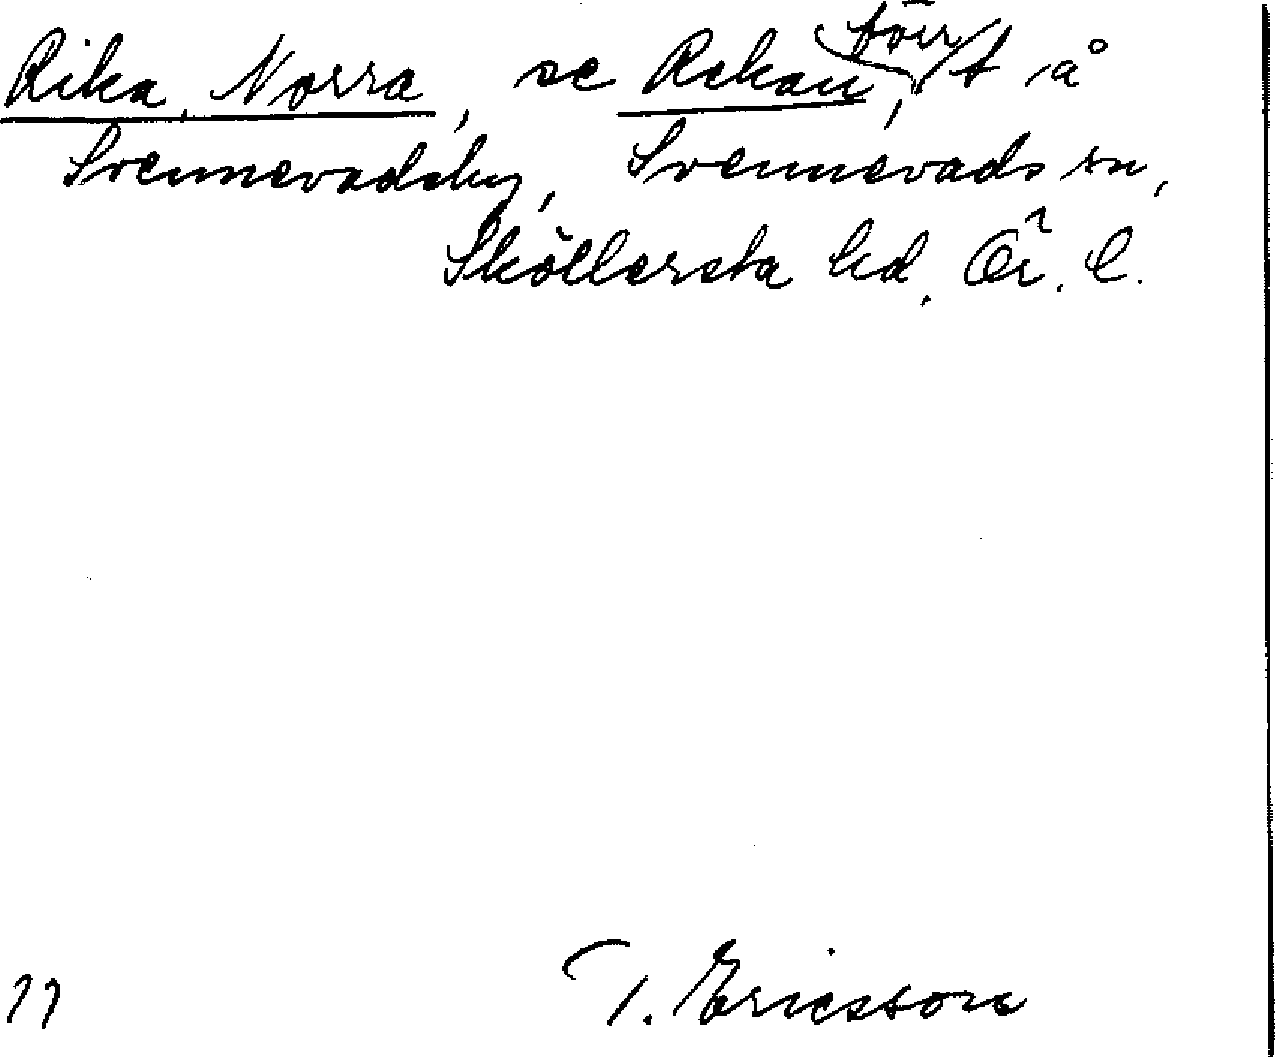 Rika, Norra, se Rekan, förr t å
Svennevadsby, Svennevads sn,
Sköllersta hd, Ör. l.
T. Ericsson
77